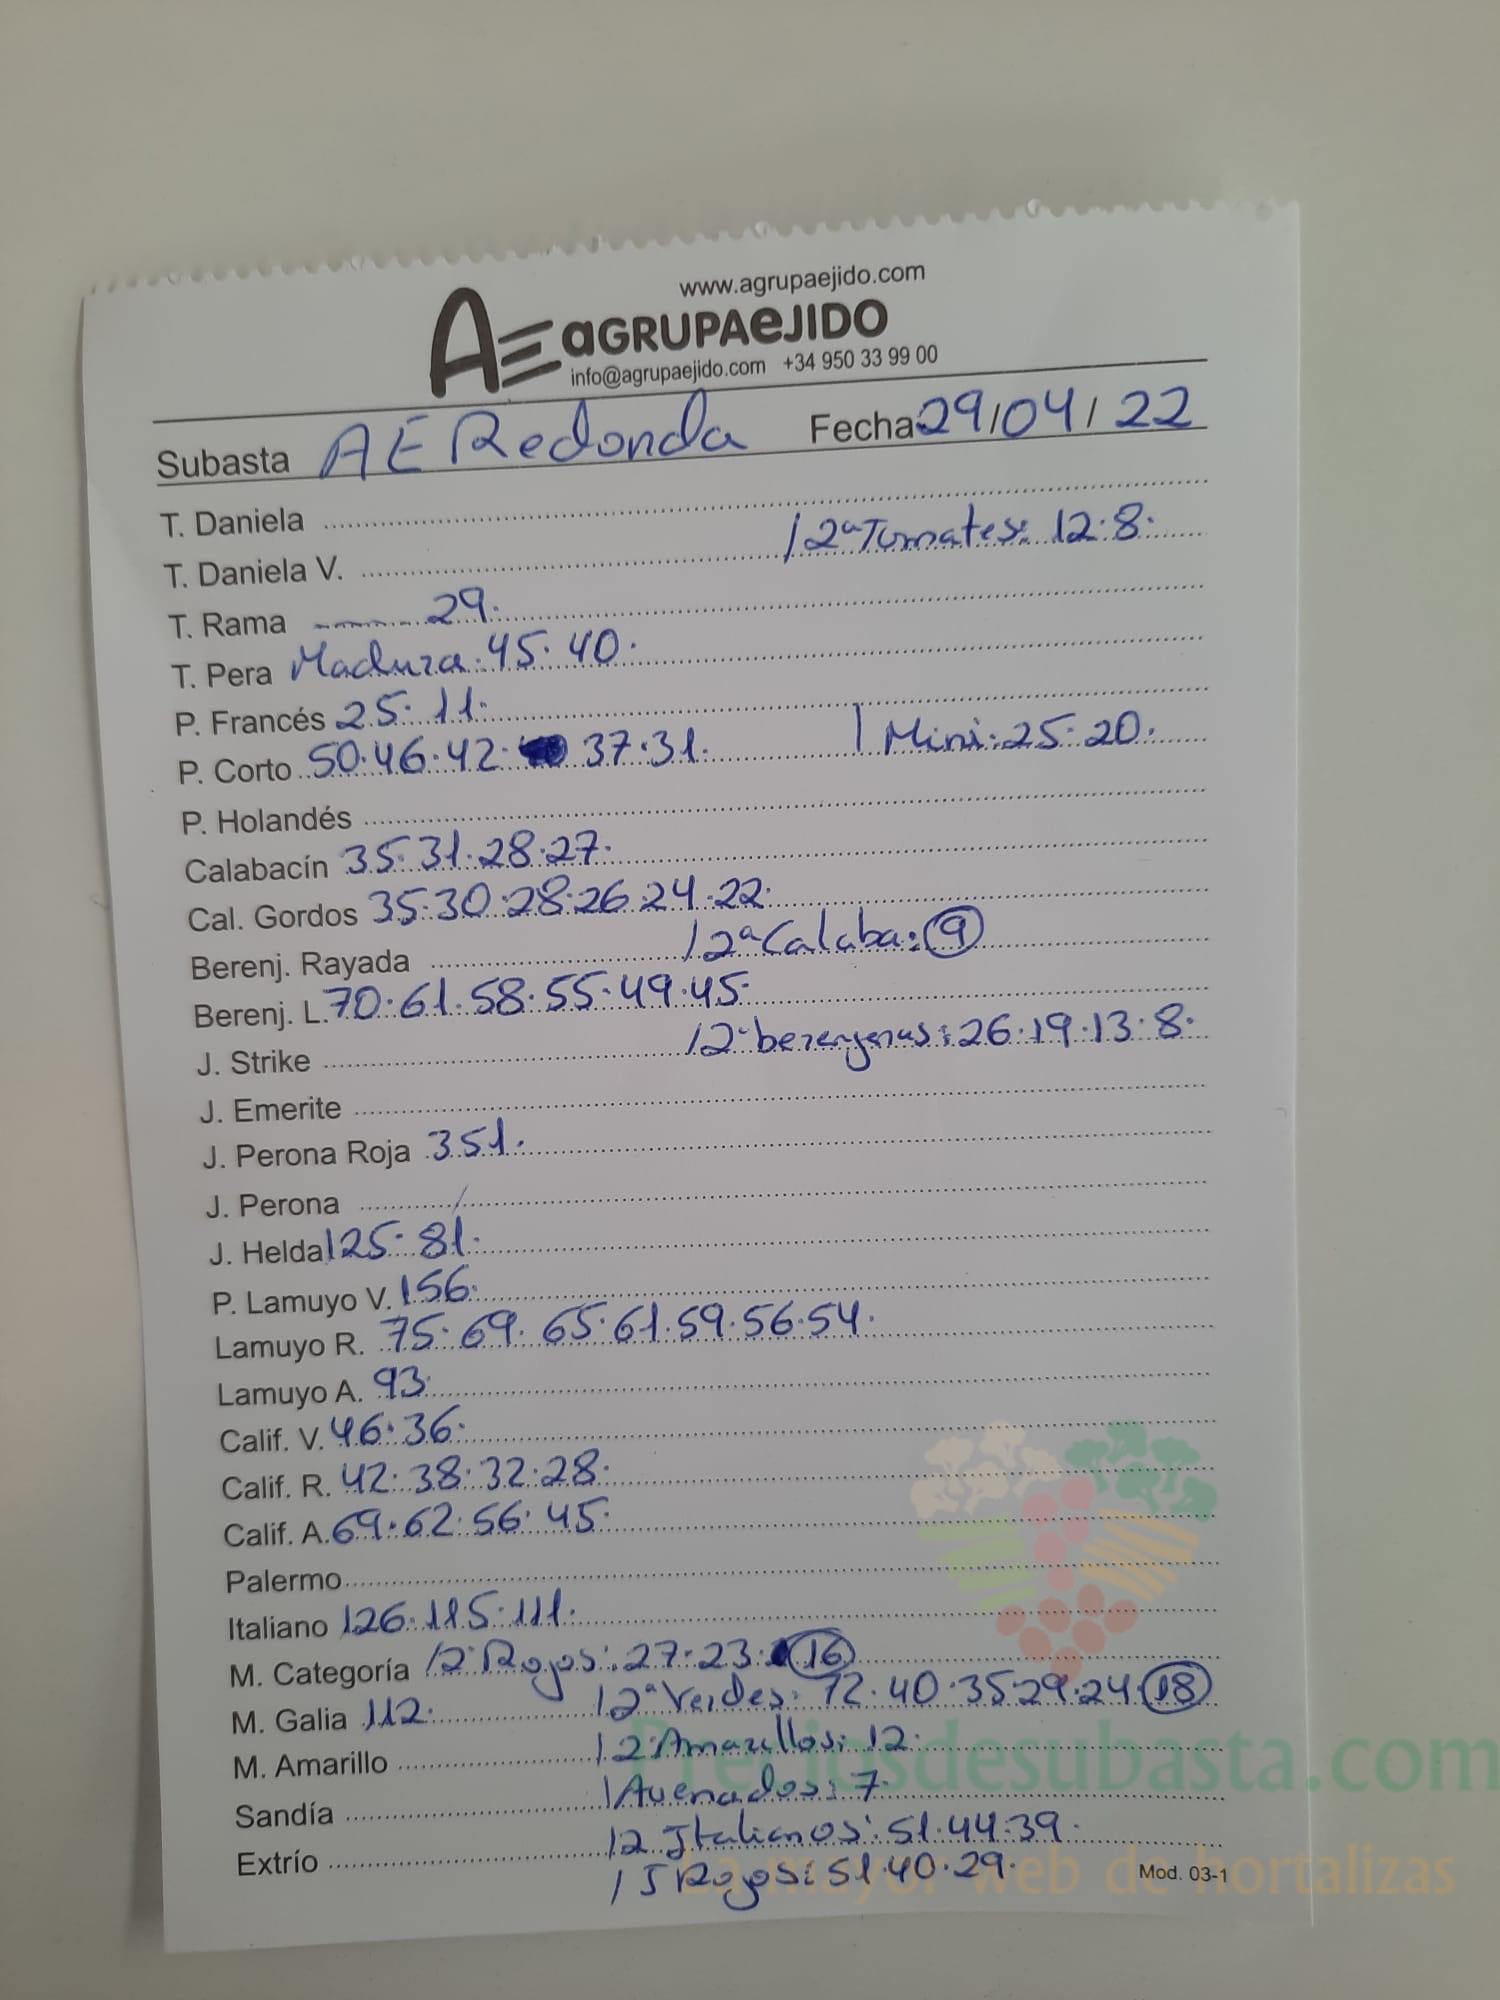 www.agrupaejido.com
AE aGRUPAeJIDO
info@agrupaejido.com +34 950 33 99 00
Subasta AE Redonda Fecha 29/04/22
T. Daniela
T. Daniela V. / 2ª Tomates: 12.8.
T. Rama 29.
T. Pera Madura: 45. 40.
P. Francés 25. 11.
P. Corto 50.46.42. 37.31. | Mini: 25.20.
P. Holandés
Calabacín 35.31.28.27.
Cal. Gordos 35.30.28.26.24.22.
Berenj. Rayada / 2ª Calaba: 9
Berenj. L. 70.61.58.55.49.45.
J. Strike / 2ª berenjenas: 26.19.13.8.
J. Emerite
J. Perona Roja 351.
J. Perona
J. Helda 125. 81.
P. Lamuyo V. 156.
Lamuyo R. 75.69. 65.61.59.56.54.
Lamuyo A. 93.
Calif. V. 46.36.
Calif. R. 42.38.32.28.
Calif. A. 69.62.56.45.
Palermo
Italiano 126.115.111.
M. Categoría / 2ª Rojos: 27.23. 16
M. Galia 112. / 2ª Verdes: 72.40.35.29.24. 18
M. Amarillo / 2ª Amarillos: 12.
Sandía / Avenados: 7.
Extrío / 2 Italianos: 51.44.39.
/ I Rojos: 51.40.29.
Mod. 03-1
Preciosdesubasta.com
La mayor web de hortalizas